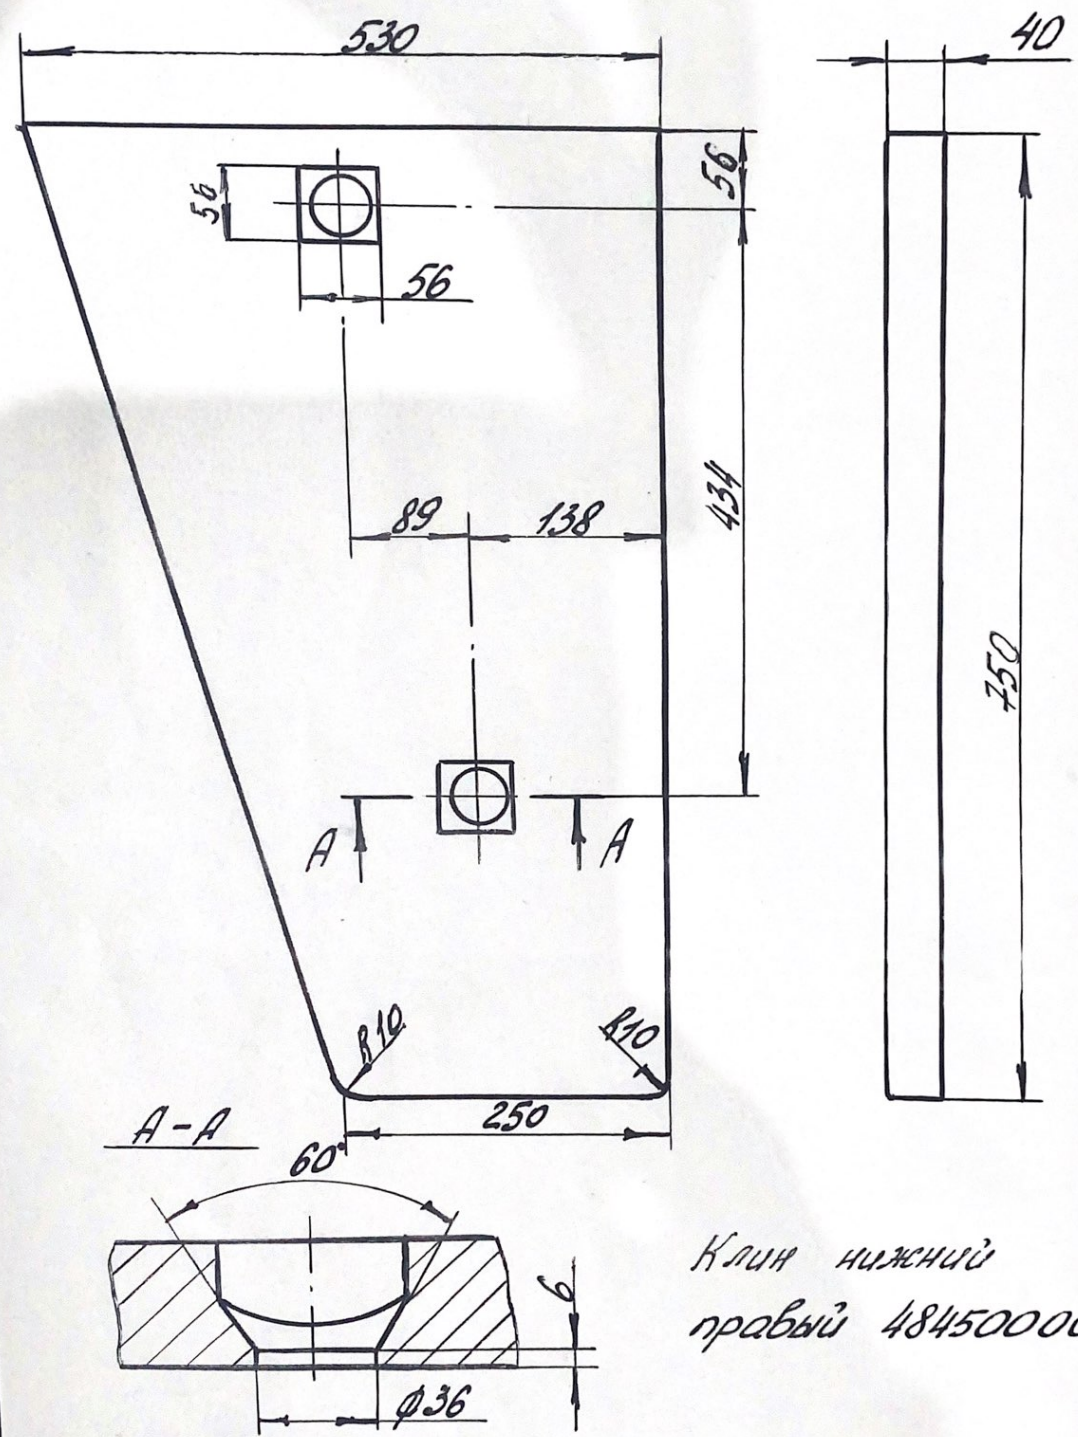 530
40
56
56
56
434
89
138
750
А
А
R10
R10
250
А-А
60°
6
ф36
Клин нижний
правый 48450000